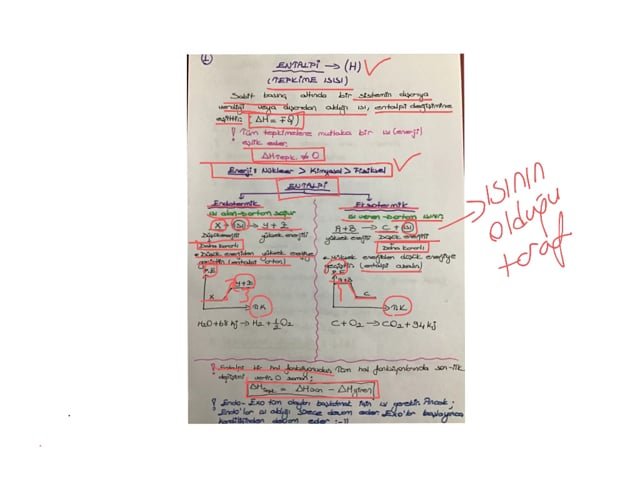 1
ENTALPİ → (H)
(TEPKİME ISISI)
Sabit basınç altında bir sistemin dışarıya
verdiği veya dışarıdan aldığı ısı, entalpi değişimine
eşittir. (ΔH = ∓Q)
! Tüm tepkimelere mutlaka bir ısı (enerji)
eşlik eder.
ΔHTepk. ≠ 0
Enerji: Nükleer > Kimyasal > Fiziksel
ENTALPİ
Endotermik
ısı alan-ortam soğur
X + ısı → Y + Z
Düşük enerjili yüksek enerjili
Daha kararlı
• Düşük enerjiden yüksek enerjiye
(entalpi artar)
P.E
Y+Z
X
T.K
H2O + 68 kj → H2 + 1/2 O2
Ekzotermik
ısı veren-ortam ısınır
A+B → C + ısı
yüksek enerjili Düşük enerjili
Daha kararlı
• yüksek enerjiden düşük enerjiye
(entalpi azalır)
P.E
A+B
C
T.K
C + O2 → CO2 + 94 kj
ISININ
olduğu
taraf
! Entalpi bir hal fonksiyonudur. Tüm hal fonksiyonlarında son-ilk
değişimi verir. O zaman;
ΔHtepk. = ΔHürün - ΔHgiren
! Endo-Exo tüm olayları başlatmak için ısı gerekir. Ancak;
Endo'lar ısı aldığı sürece devam eder. Exo'lar başlayınca
kendiliğinden devam eder :-))